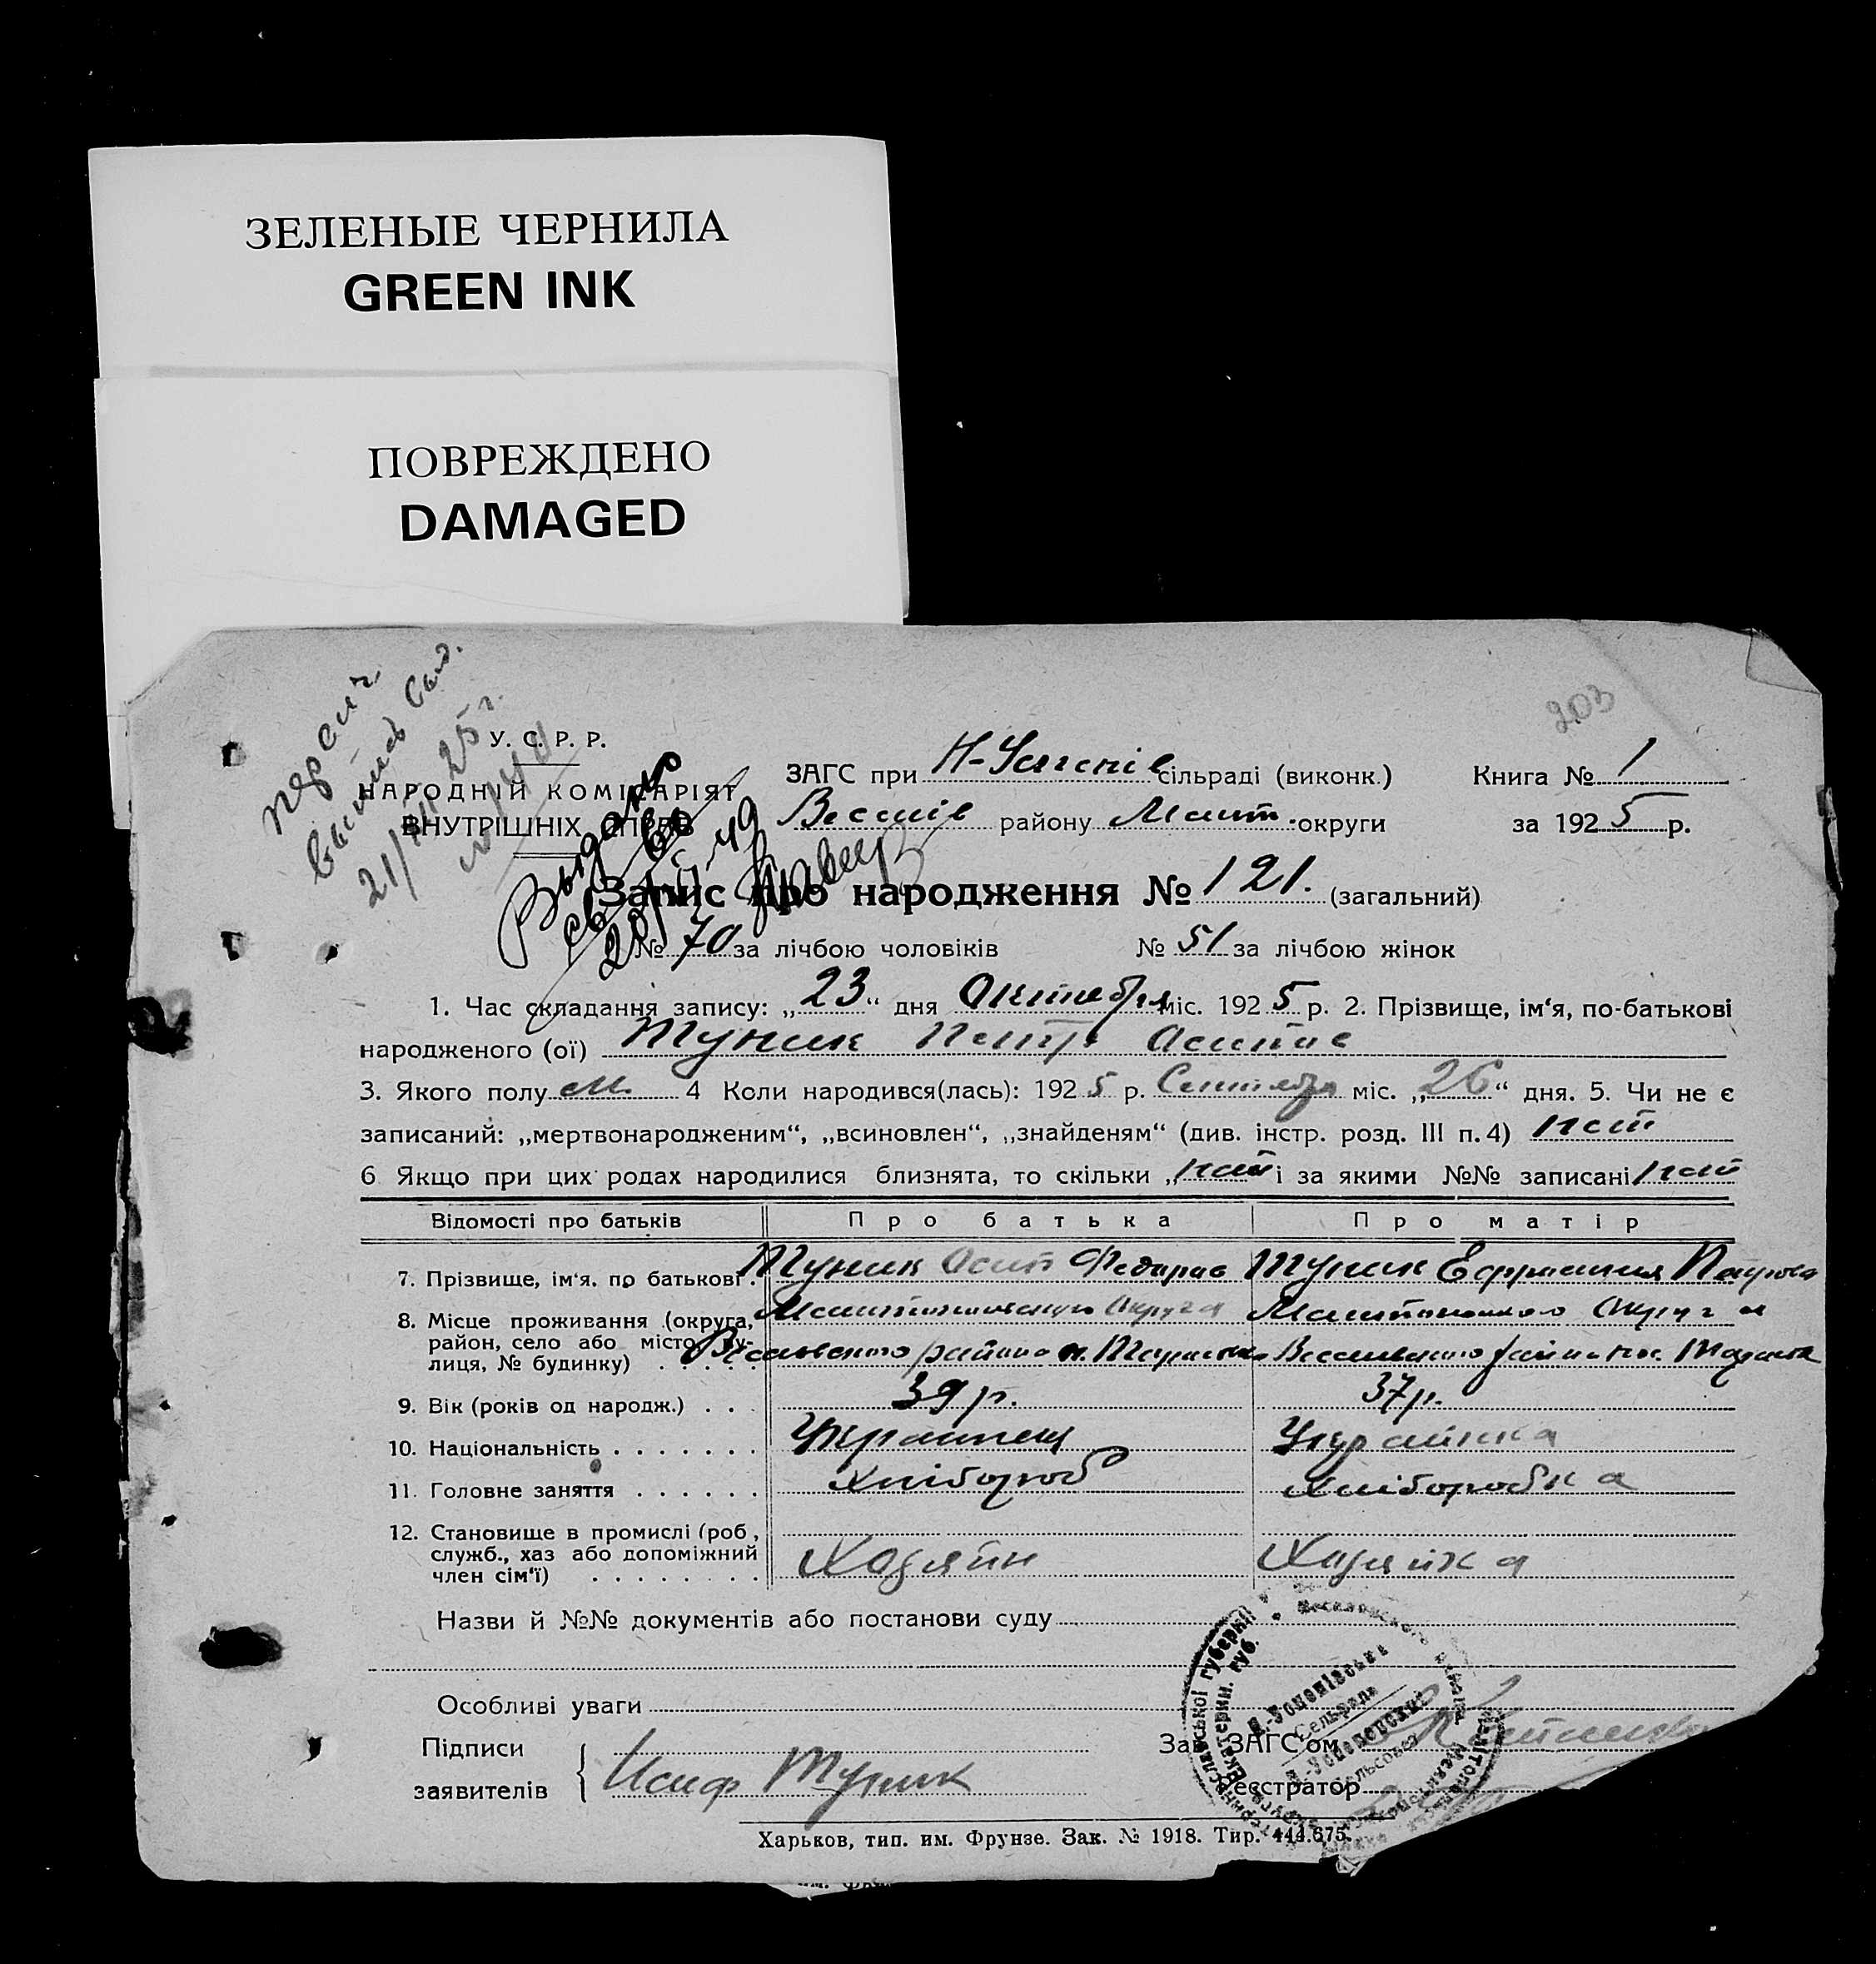 ЗЕЛЕНЫЕ ЧЕРНИЛА
GREEN INK
ПОВРЕЖДЕНО
DAMAGED
203
У. С. Р. Р.
НАРОДНІЙ КОМІСАРІЯТ
ВНУТРІШНІХ СПРАВ
21/ 25 г.
Выдано
ЗАГС при сільраді (виконк.) Книга № 1
Веселів району Меліт. округи за 1925 р.
Запис про народження № 121. (загальний)
№ 70 за лічбою чоловіків № 51 за лічбою жінок
1. Час складання запису: „23“ дня Октебря міс. 1925 р. 2. Прізвище, ім‘я, по-батькові
народженого (ої) Туник Петр Осипов
3. Якого полу м. 4 Коли народився(лась): 1925 р. Сентебря міс. „26“ дня. 5. Чи не є
записаний: „мертвонародженим“, „всиновлен“, „знайденям“ (див. інстр. розд. III п. 4) нет
6 Якщо при цих родах народилися близнята, то скільки „нет і за якими №№ записані нет
Відомості про батьків Про батька Про матір
7. Прізвище, ім‘я. по батькові. Туник Осип Федоров Туник Ефросиния Петрова
8. Місце проживання (округа, Округа Округа
район, село або місто, ву- района района
лиця, № будинку)
9. Вік (років од народж.) 39 р. 37 р.
10. Національність Украинец Українка
11. Головне заняття Хлібороб Хліборобка
12. Становище в промислі (роб.,
служб., хаз або допоміжний Хозяин Хозяйка
член сім‘ї)
Назви й №№ документів або постанови суду
Особливі уваги
Підписи Зав. ЗАГС‘ом
заявителів Исиф Туник Реєстратор
Харьков, тип. им. Фрунзе. Зак. № 1918. Тир. 444.675.